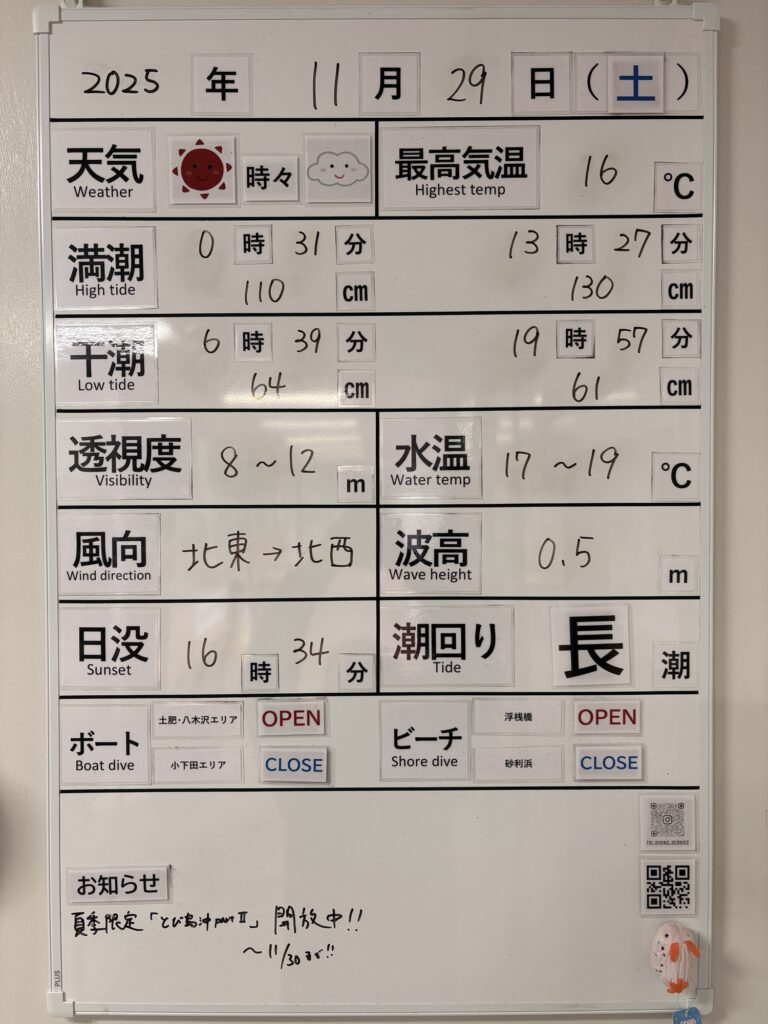 2025 年 11 月 29 日 (土)
天気 時々 最高気温 16 ℃
Weather Highest temp
満潮 0 時 31 分 13 時 27 分
High tide 110 cm 130 cm
干潮 6 時 39 分 19 時 57 分
Low tide 64 cm 61 cm
透視度 8～12 m 水温 17～19 ℃
Visibility Water temp
風向 北東→北西 波高 0.5 m
Wind direction Wave height
日没 16 時 34 分 潮回り 長 潮
Sunset Tide
ボート 土肥・八木沢エリア OPEN ビーチ 浮桟橋 OPEN
Boat dive 小下田エリア CLOSE Shore dive 砂利浜 CLOSE
TOI.DIVING.SERVICE
お知らせ
夏季限定「とび島沖partⅡ」開放中!!
～11/30まで!!
PLUS